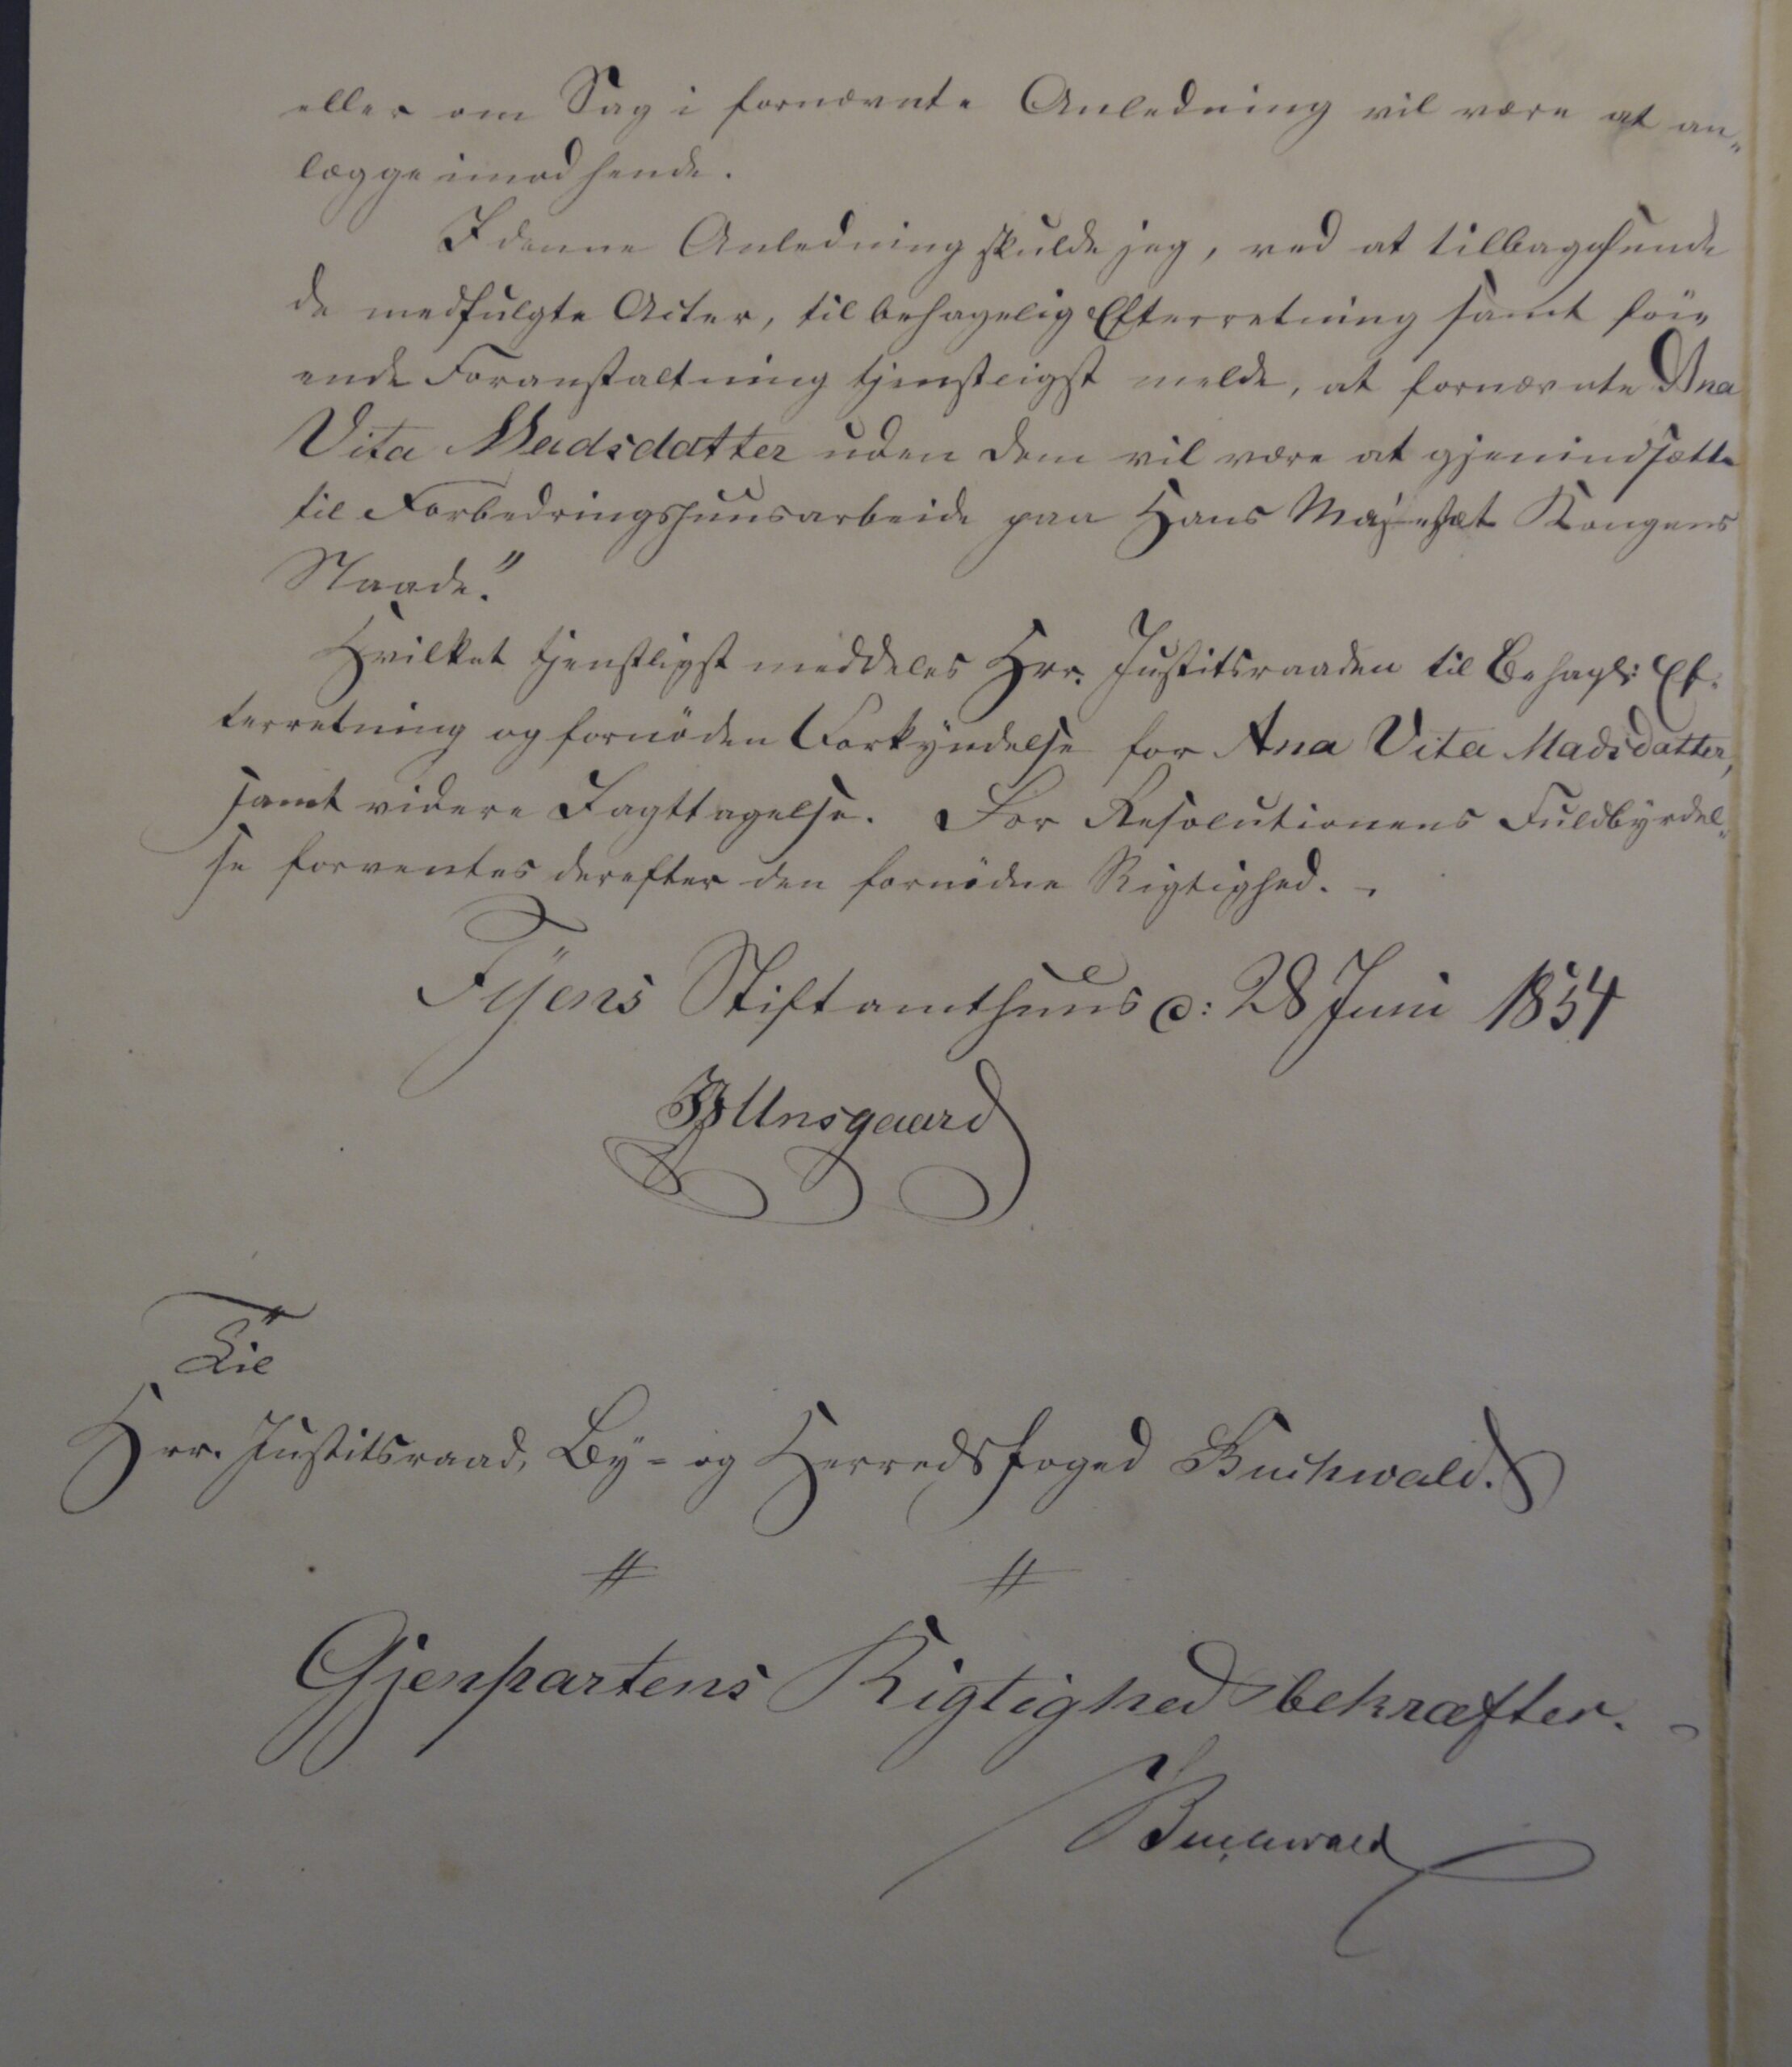 eller om Sag i fornævnte Anledning vil være at an„
lægge imod hende.
I denne Anledning skulde jeg, ved at tilbagesende
de medfulgte Acter, til behagelig Efterretning samt föi„
ende Foranstaltning tjenstligst melde, at fornævnte Ana
Vita Madsdatter uden Dom vil være at gjenindsætte
til Forbedringshuusarbeide paa Hans Majestæt Kongens
Naade."
Hvilket tjenstligst meddeles Hrr. Justitsraaden til Behagl: Ef„
terretning og fornöden Forkyndelse for Ana Vita Madsdatter,
samt videre Iagttagelse. For Resolutionens Fuldbyrdel„
se forventes derefter den fornödne Rigtighed. -
Fyens Stiftamthuus d: 28 Juni 1854
Unsgaard
Til
Hrr. Justitsraad, By- og Herredsfoged Buchwald.
Gjenpartens Rigtighed bekræfter. -
Buchwald